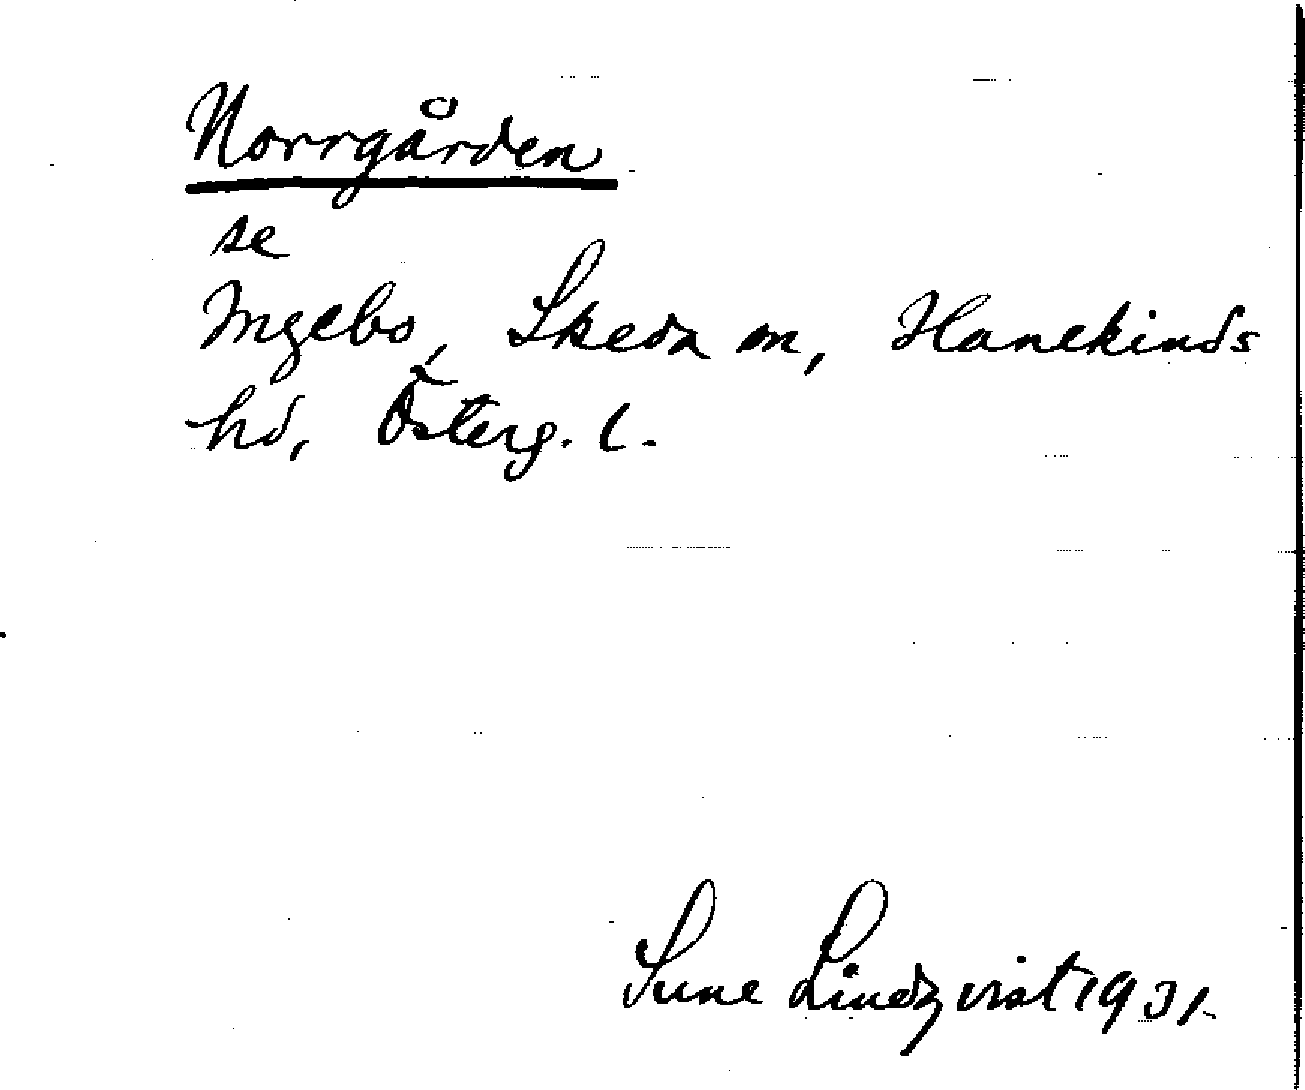 Norrgården
se
Ingebo, Skeda sn, Hanekinds
hd, Österg. l.
Sune Lindqvist 1931.